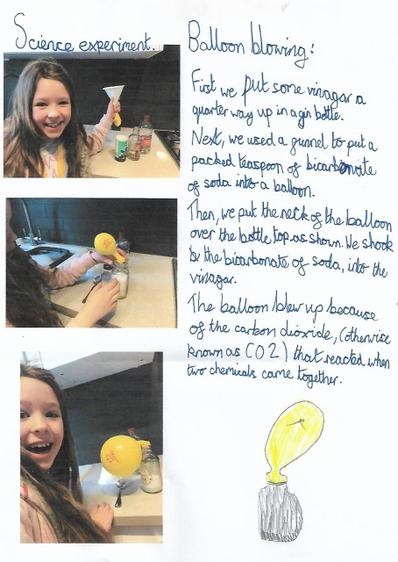 Science experiment.
Balloon blowing:
First we put some vinagar a
quarter way up in a gin bottle.
Next, we used a funnel to put a
packed teaspoon of bicarbonate
of soda into a balloon.
Then, we put the neck of the balloon
over the bottle top as shown. We shook
the bicarbonate of soda, into the
vinagar.
The balloon blew up because
of the carbon dioxide, (otherwise
known as CO2) that reacted when
two chemicals came together.